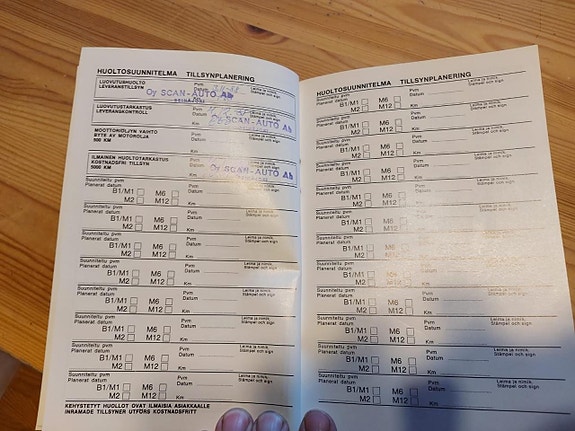 HUOLTOSUUNNITELMA TILLSYNPLANERING
LUOVUTUSHUOLTO
LEVERANSTILLSYN
Pvm
Datum
Leima ja nimik.
Stämpel och sign
Oy SCAN-AUTO Ab
LUOVUTUSTARKASTUS
LEVERANSKONTROLL
Pvm
Datum
Leima ja nimik.
Stämpel och sign
Oy SCAN-AUTO Ab
MOOTTORIÖLJYN VAIHTO
BYTE AV MOTOROLJA
500 KM
Pvm
Datum
Km
Leima ja nimik.
Stämpel och sign
ILMAINEN HUOLTOTARKASTUS
KOSTNADSFRI TILLSYN
5000 KM
Pvm
Datum
Km
Leima ja nimik.
Oy SCAN-AUTO Ab
Suunniteltu pvm
Planerat datum
B1/M1 M6
M2 M12
Pvm
Datum
Km
Leima ja nimik.
Stämpel och sign
Suunniteltu pvm
Planerat datum
B1/M1 M6
M2 M12
Pvm
Datum
Km
Leima ja nimik.
Stämpel och sign
Suunniteltu pvm
Planerat datum
B1/M1 M6
M2 M12
Pvm
Datum
Km
Leima ja nimik.
Stämpel och sign
Suunniteltu pvm
Planerat datum
B1/M1 M6
M2 M12
Pvm
Datum
Km
Leima ja nimik.
Stämpel och sign
Suunniteltu pvm
Planerat datum
B1/M1 M6
M2 M12
Pvm
Datum
Km
Leima ja nimik.
Stämpel och sign
Suunniteltu pvm
Planerat datum
B1/M1 M6
M2 M12
Pvm
Datum
Km
Leima ja nimik.
Stämpel och sign
Suunniteltu pvm
Planerat datum
B1/M1 M6
M2 M12
Pvm
Datum
Km
Leima ja nimik.
Stämpel och sign
Suunniteltu pvm
Planerat datum
B1/M1 M6
M2 M12
Pvm
Datum
Km
Leima ja nimik.
Stämpel och sign
KEHYSTETYT HUOLLOT OVAT ILMAISIA ASIAKKAALLE
INRAMADE TILLSYNER UTFÖRS KOSTNADSFRITT
HUOLTOSUUNNITELMA TILLSYNPLANERING
Suunniteltu pvm
Planerat datum
B1/M1 M6
M2 M12
Pvm
Datum
Km
Leima ja nimik.
Stämpel och sign
Suunniteltu pvm
Planerat datum
B1/M1 M6
M2 M12
Pvm
Datum
Km
Leima ja nimik.
Stämpel och sign
Suunniteltu pvm
Planerat datum
B1/M1 M6
M2 M12
Pvm
Datum
Km
Leima ja nimik.
Stämpel och sign
Suunniteltu pvm
Planerat datum
B1/M1 M6
M2 M12
Pvm
Datum
Km
Leima ja nimik.
Stämpel och sign
Suunniteltu pvm
Planerat datum
B1/M1 M6
M2 M12
Pvm
Datum
Km
Leima ja nimik.
Stämpel och sign
Suunniteltu pvm
Planerat datum
B1/M1 M6
M2 M12
Pvm
Datum
Km
Leima ja nimik.
Stämpel och sign
Suunniteltu pvm
Planerat datum
B1/M1 M6
M2 M12
Pvm
Datum
Km
Leima ja nimik.
Stämpel och sign
Suunniteltu pvm
Planerat datum
B1/M1 M6
M2 M12
Pvm
Datum
Km
Leima ja nimik.
Stämpel och sign
Suunniteltu pvm
Planerat datum
B1/M1 M6
M2 M12
Pvm
Datum
Km
Leima ja nimik.
Stämpel och sign
Suunniteltu pvm
Planerat datum
B1/M1 M6
M2 M12
Pvm
Datum
Km
Leima ja nimik.
Stämpel och sign
Suunniteltu pvm
Planerat datum
B1/M1 M6
M2 M12
Pvm
Datum
Km
Leima ja nimik.
Stämpel och sign